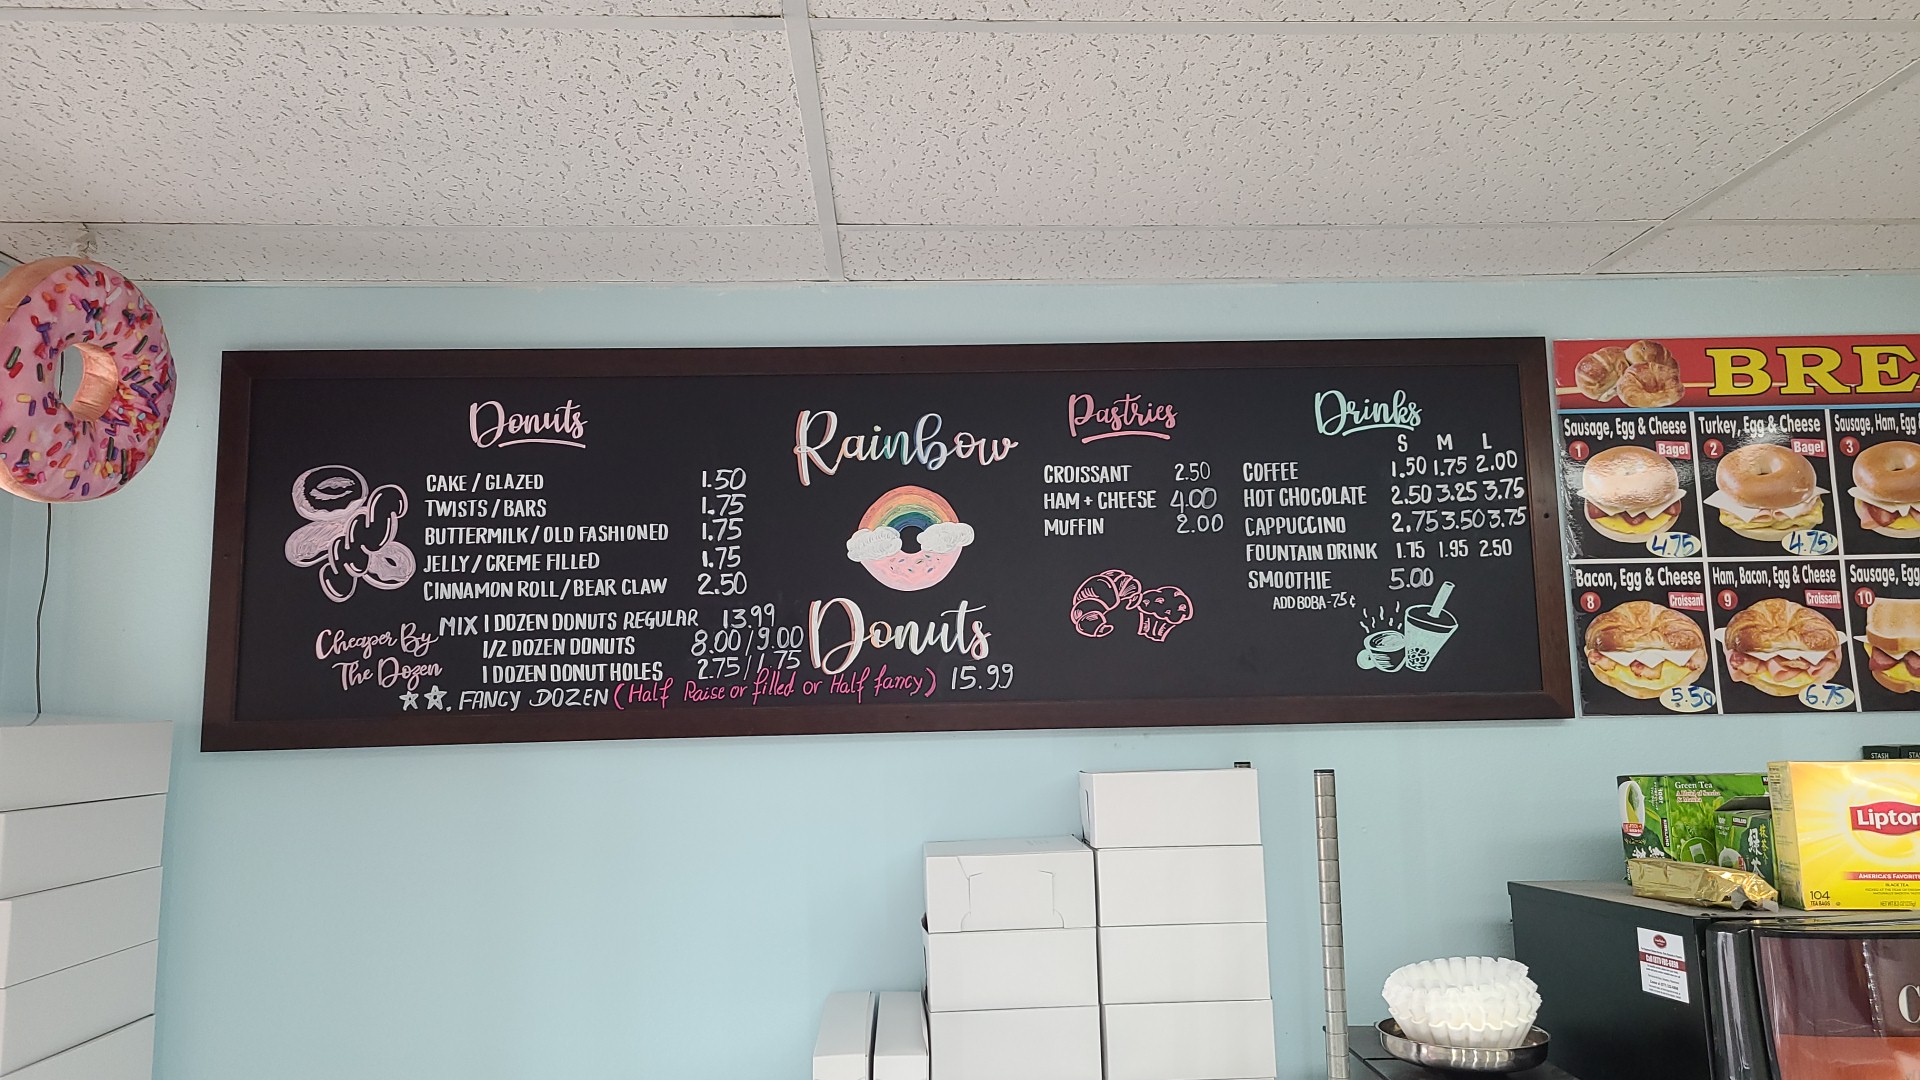 Donuts
CAKE / GLAZED 1.50
TWISTS / BARS 1.75
BUTTERMILK / OLD FASHIONED 1.75
JELLY / CREME FILLED 1.75
CINNAMON ROLL / BEAR CLAW 2.50
Cheaper By
The Dozen
MIX 1 DOZEN DONUTS REGULAR 13.99
1/2 DOZEN DONUTS 8.00/9.00
1 DOZEN DONUT HOLES 2.75/1.75
FANCY DOZEN (Half Raise or filled or Half fancy) 15.99
Rainbow
Donuts
Pastries
CROISSANT 2.50
HAM + CHEESE 4.00
MUFFIN 2.00
Drinks
S M L
COFFEE 1.50 1.75 2.00
HOT CHOCOLATE 2.50 3.25 3.75
CAPPUCCINO 2.75 3.50 3.75
FOUNTAIN DRINK 1.75 1.95 2.50
SMOOTHIE 5.00
ADD BOBA - 75¢
BRE
Sausage, Egg & Cheese
1 Bagel
4.75
Turkey, Egg & Cheese
2 Bagel
4.75
Sausage, Ham, Egg
3
Bacon, Egg & Cheese
8 Croissant
5.50
Ham, Bacon, Egg & Cheese
9 Croissant
6.75
Sausage, Egg
10
STASH
Green Tea
Lipton
AMERICA'S FAVORITE
BLACK TEA
104
TEA BAGS